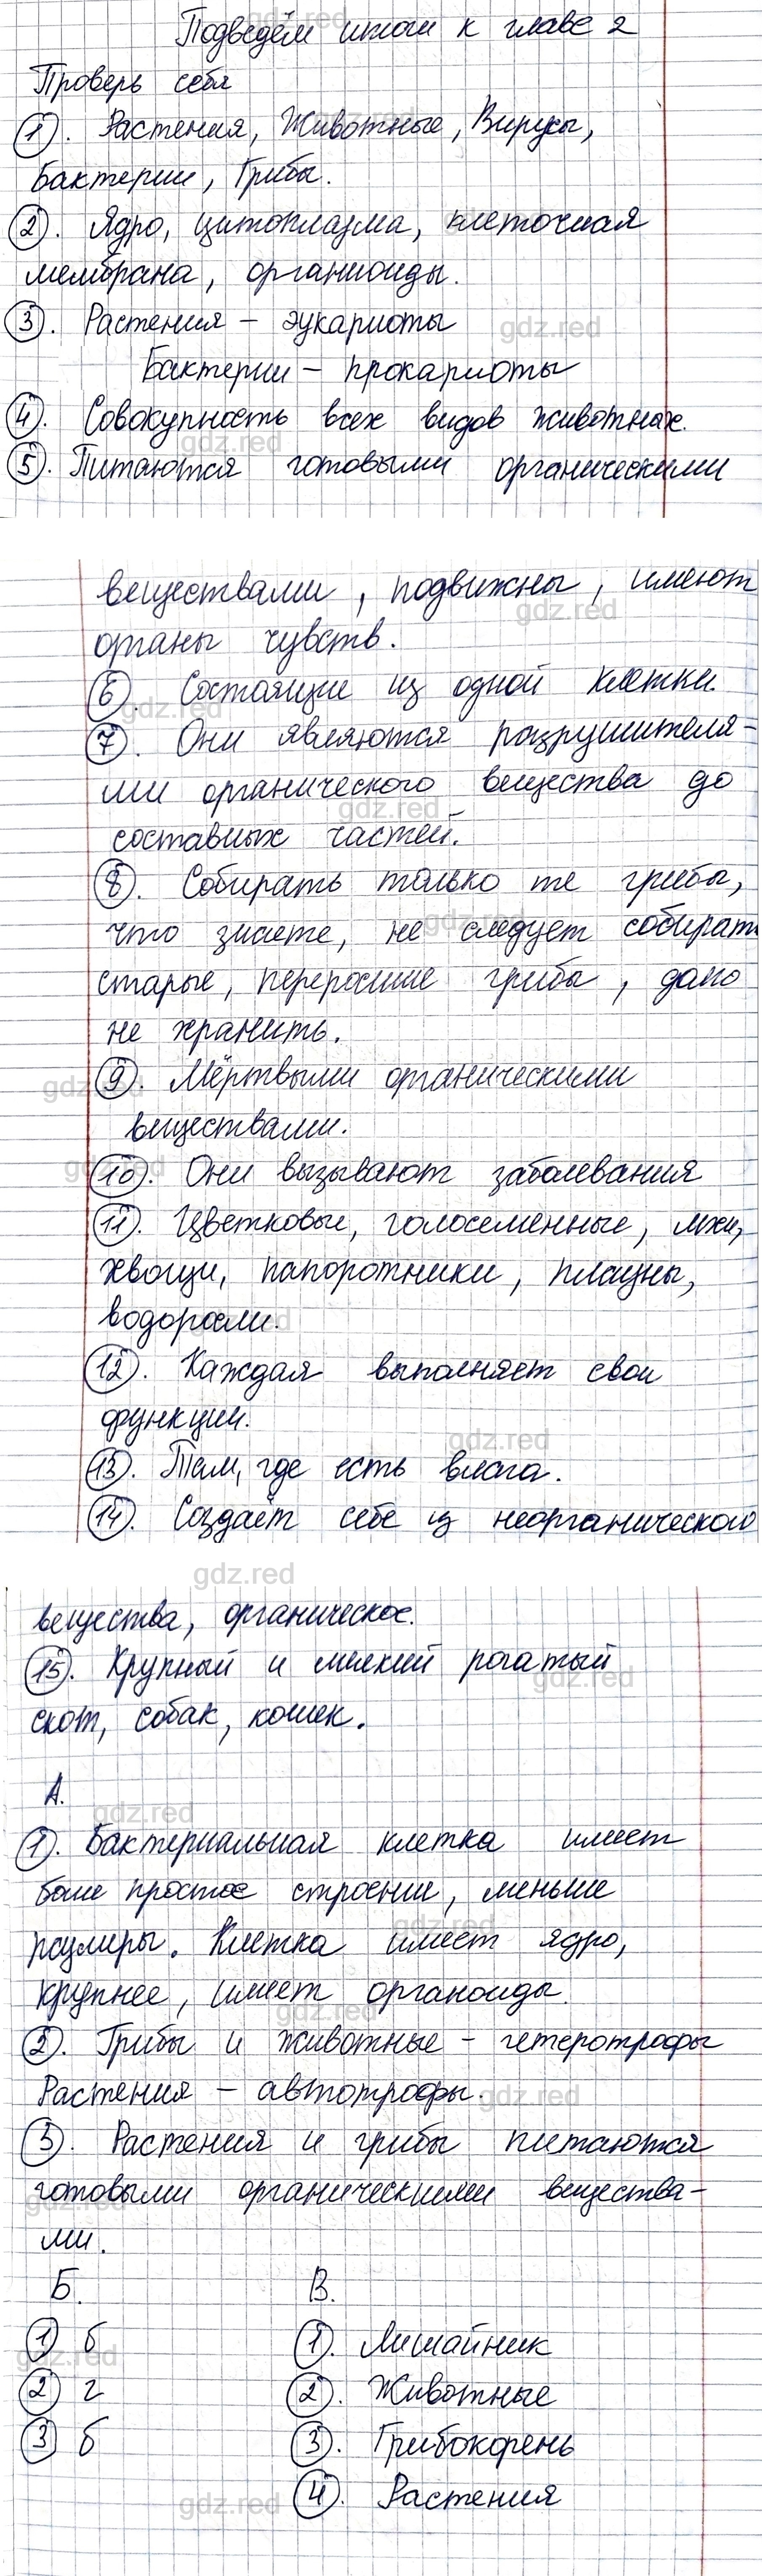 Подведём итоги к главе 2
Проверь себя
1. Растения, Животные, Вирусы,
Бактерии, Грибы.
2. Ядро, цитоплазма, клеточная
мембрана, органиоиды.
3. Растения – эукариоты
Бактерии – прокариоты
4. Совокупность всех видов животных.
5. Питаются готовыми органическими
веществами, подвижны, имеют
органы чувств.
6. Состоящие из одной клетки.
7. Они являются разрушителя-
ми органического вещества до
составных частей.
8. Собирать только те грибы,
что знаете, не следует собират
старые, переросшие грибы, дано
не хранить.
9. Мёртвыми органическими
веществами.
10. Они вызывают заболевания
11. Цветковые, голосеменные, мхи,
хвощи, папоротники, плауны,
водоросли.
12. Каждая выполняет свои
функции.
13. Там, где есть влага.
14. Создаёт себе из неорганического
вещества, органическое.
15. Крупный и мелкий рогатый
скот, собак, кошек.
А.
1. Бактериальная клетка имеет
боле простое строении, меньше
размеры. Клетка имеет ядро,
крупнее, имеет органоиды.
2. Грибы и животные – гетеротрофы
Растения – автотрофы.
3. Растения и грибы питаются
готовыми органическими вещества-
ми.
Б. В.
1 б 1. Лишайник
2 г 2. Животные
3 б 3. Грибокорень
4. Растения
gdz.red